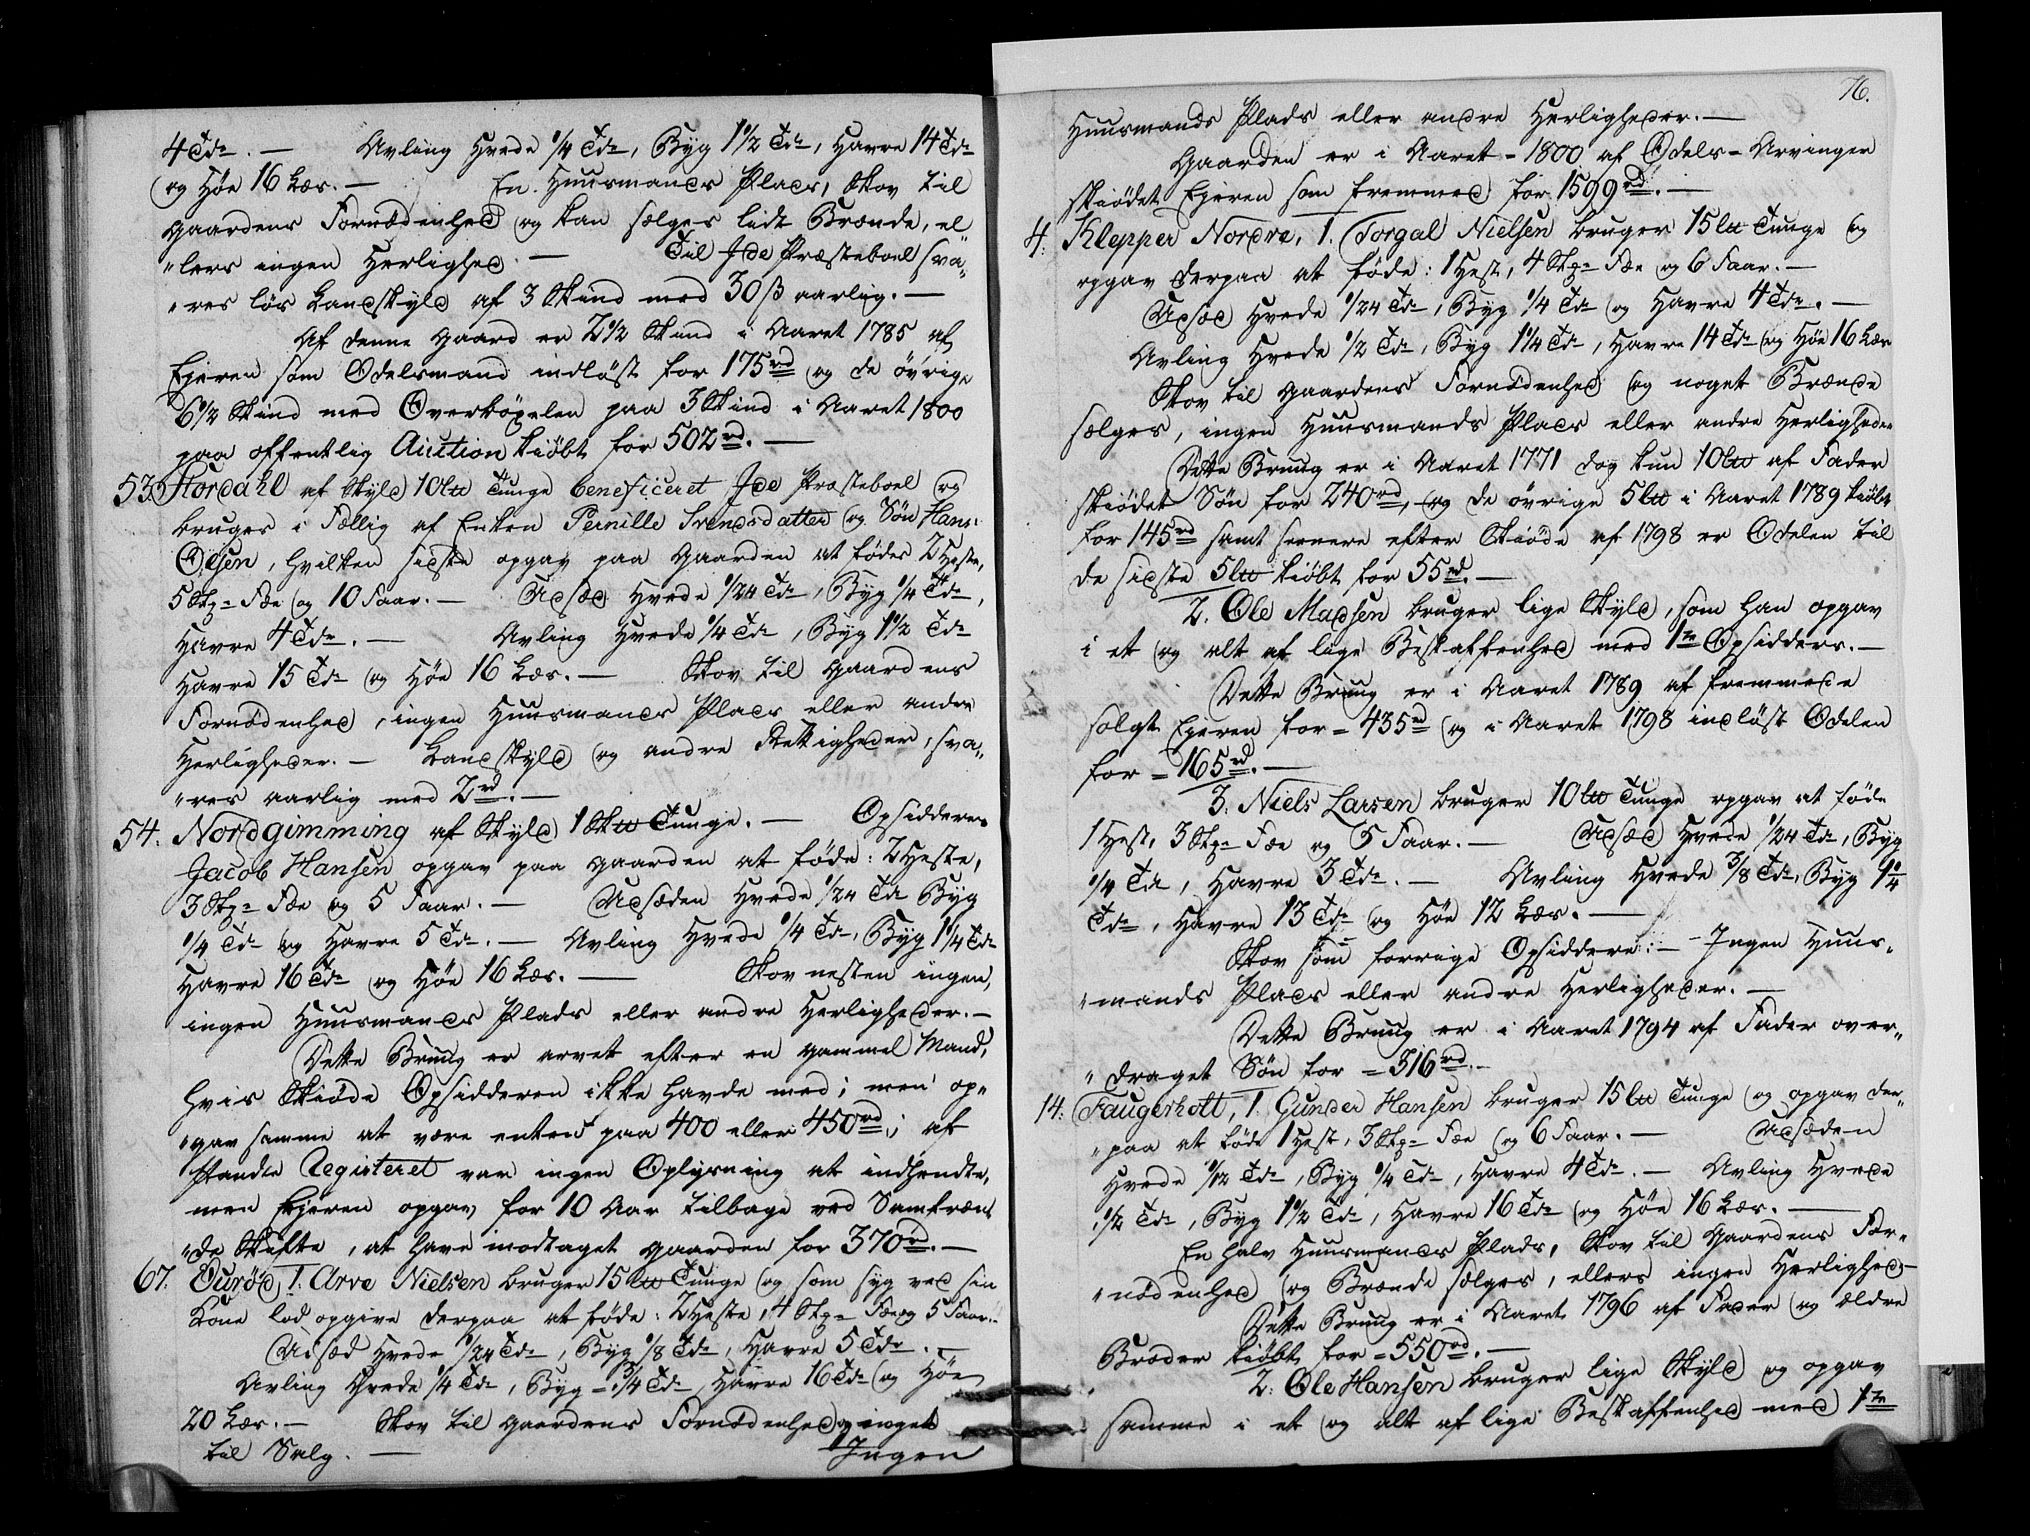 4 Tdr. — Avling Hvede 1/4 Tdr, Byg 1 1/2 Tdr, Havre 14 Tdr
og Høe 16 Læs. — En Huusmands Plads, Skov til
Gaardens Fornødenhed og kan sælges lidt Brænde, el
"lers ingen Herlighed. — Til Ide Præsteboel sva„
"res løs Landskyld af 3 Skind med 30 ß aarlig. —
Af denne Gaard er 2 1/2 Skind i Aaret 1785 af
Ejeren som Odelsmand indløst for 175 rd og de øvrige
6 1/2 Skind med Overbøxelen paa 3 Skind i Aaret 1800
paa offentlig Auction kiøbt for 502 rd. —
53. Stordahl af Skyld 10 lb Tunge beneficeret Ide Præsteboel og
bruges i Fællig af Enken Pernille Svendsdatter og Søn Hans
Olsen, hvilken sidste opgav paa Gaarden at fødes 2 Heste,
5 Stkr Fæ og 10 Faar. — Udsæd Hvede 1/24 Tdr, Byg 1/4 Tdr,
Havre 4 Tdr. — Avling Hvede 1/4 Tdr, Byg 1 1/2 Tdr
Havre 15 Tdr og Høe 16 Læs. — Skov til Gaardens
Fornødenhed, ingen Huusmands Plads eller andre
Herligheder. — Landskyld og andre Rettigheder, sva„
"res aarlig med 2 rd. —
54. Nordgimming af Skyld 1 Sklb Tunge. — Opsidderen
Jacob Hansen opgav paa Gaarden at føde: 2 Heste,
3 Stkr Fæ og 5 Faar. — Udsæden Hvede 1/24 Td Byg
1/4 Tdr og Havre 5 Tdr. — Avling Hvede 1/4 Tdr, Byg 1 1/4 Tdr
Havre 16 Tdr og Høe 16 Læs. — Skov nesten ingen,
ingen Huusmands Plads eller andre Herligheder. —
Dette Bruug er arvet efter en gammel Mand,
hvis Skiøde Opsidderen ikke havde med; men op„
"gav samme at være enten paa 400 eller 450 rd; af
Pante Registeret var ingen Oplysning at indhendte,
men Ejeren opgav for 10 Aar tilbage ved Samfræn
"de Skifte, at have modtaget Gaarden for 370 rd. —
67. 1. Arve Nielsen bruger 15 lb Tunge og som syg ved sin
Kone lod opgive derpaa at føde: 2 Heste, 4 Stkr Fæ og 5 Faar. —
Udsæd Hvede 1/24 Tdr, Byg 1/8 Tdr, Havre 5 Tdr. —
Avling Hvede 1/4 Tdr, Byg = 3/4 Tdr Havre 16 Tdr og Høe
20 Læs. — Skov til Gaardens Fornødenhed og inget
til Salg. — Ingen
76.
Huusmands Plads eller andre Herligheder. —
Gaarden er i Aaret - 1800 af Odels - Arvinger
skiødet Ejeren som fremmed for 1599 rd. —
4. Klepper Nordre, 1. Torgal Nielsen bruger 15 lb Tunge og
opgav derpaa at føde: 1 Hest, 4 Stkr Fæ og 6 Faar. —
Udsæd Hvede 1/24 Tdr, Byg 1/4 Td og Havre 4 Tdr. —
Avling Hvede 1/2 Tdr, Byg 1 1/4 Tdr, Havre 14 Tdr og Høe 16 Læs
Skov til Gaardens Fornødenhed og noget Brænde
sælges, ingen Huusmands Plads eller andre Herligheder
Dette Bruug er i Aaret 1771 dog kun 10 lb af Fader
skiødet Søn for 240 rd, og de øvrige 5 lb i Aaret 1789 kiøbt
for 145 rd samt senere efter Skiøde af 1798 er Odelen til
de sidste 5 lb kiøbt for 55 rd. —
2. Ole Madsen bruger lige Skyld, som han opgav
i et og alt af lige Beskaffenhed med 1te Opsidders. —
Dette Bruug er i Aaret 1789 af fremmede
solgt Ejeren for = 435 rd og i Aaret 1798 indløst Odelen
for = 165 rd. —
3. Niels Larsen bruger 10 lb Tunge opgav at føde
1 Hest, 3 Stkr Fæ og 5 Faar. — Udsæd Hvede 1/24 Tdr, Byg
1/4 Td, Havre 3 Tdr. — Avling Hvede 3/8 Tdr, Byg 1 1/4
Tdr, Havre 13 Tdr og Høe 12 Læs. —
Skov som forrige Opsiddere. — Ingen Huus„
"mands Plads eller andre Herligheder. —
Dette Bruug er i Aaret 1794 af Fader over„
"draget Søn for = 316 rd. —
14. Faugerholt, 1. Gunder Hansen bruger 15 lb Tunge og opgav der„
"paa at føde 1 Hest, 3 Stkr Fæ og 6 Faar. — Udsæden
Hvede 1/12 Tdr, Byg 1/4 Td, Havre 4 Tdr. — Avling Hvede
1/2 Tdr, Byg 1 1/2 Tdr, Havre 16 Tdr og Høe 16 Læs. —
En halv Huusmands Plads, Skov til Gaardens For„
"nødenhed og Brænde sælges, ellers ingen Herlighed —
Dette Bruug er i Aaret 1796 af Fader og ældre
Broder kiøbt for = 550 rd. —
2. Ole Hansen bruger lige Skyld og opgav
samme i et og alt af lige Beskaffenhed med 1te